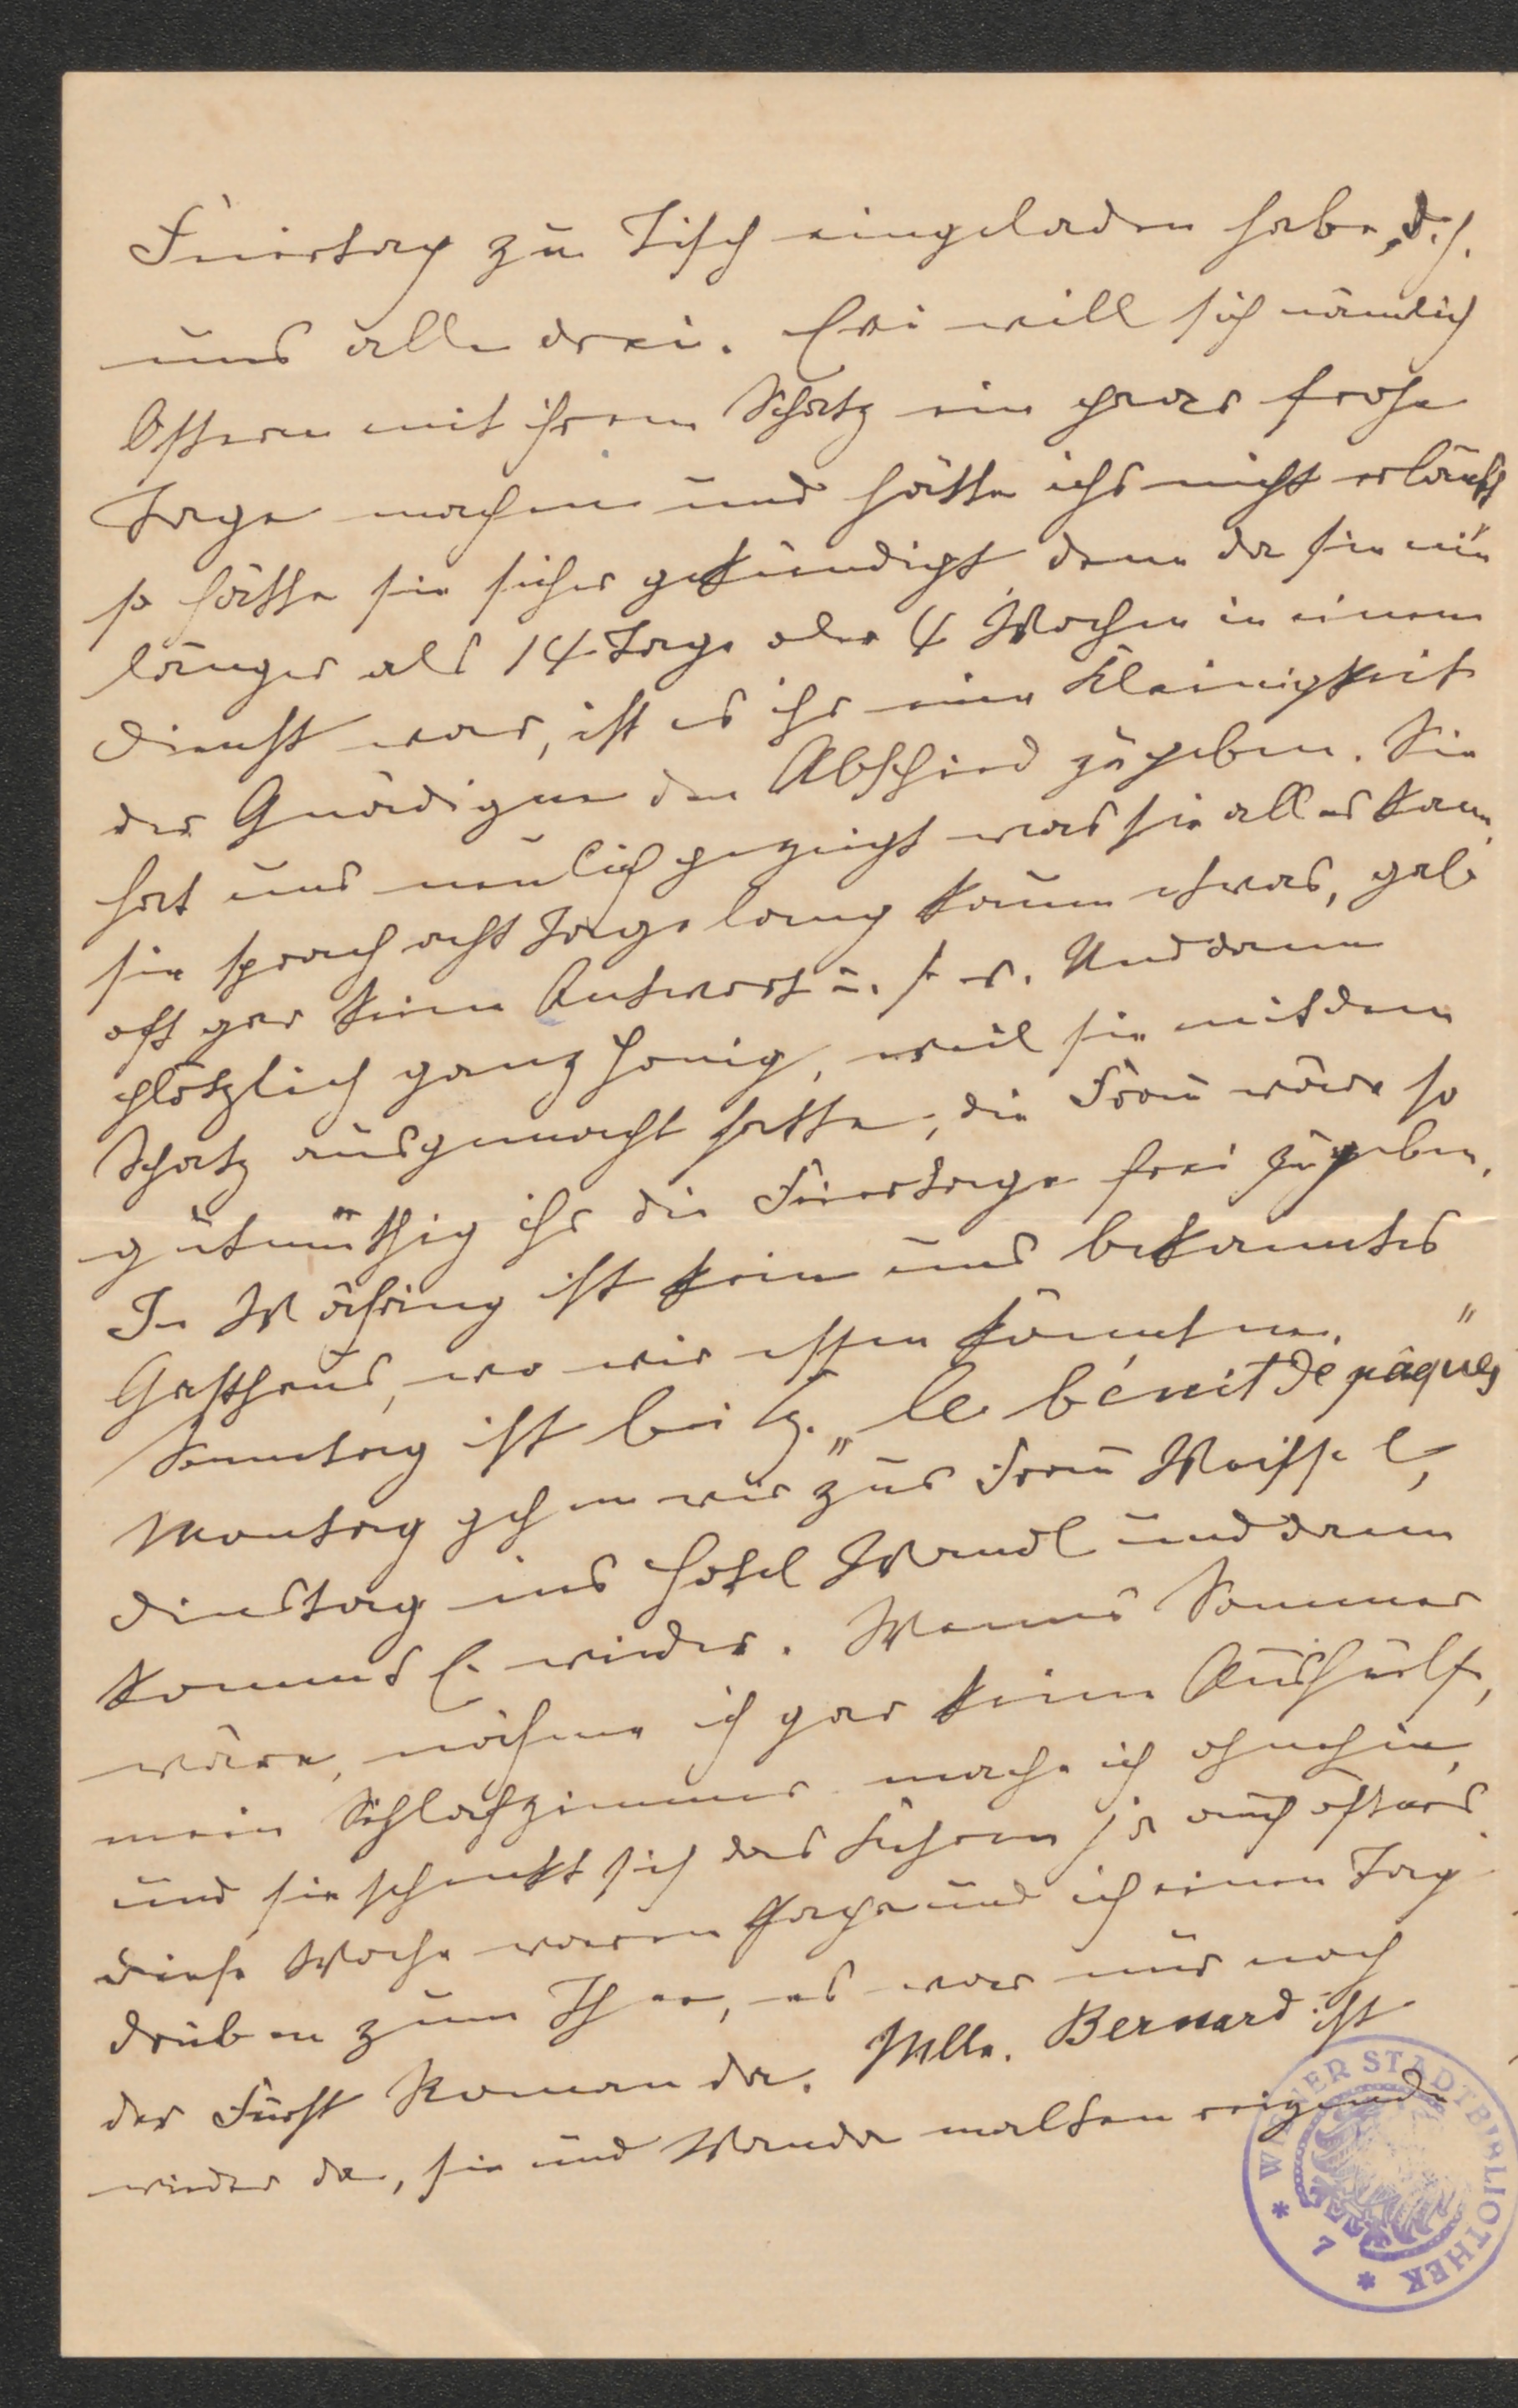 Feiertag zu Tisch eingeladen habe, d. h.
uns alle drei. Evi will sich nämlich
Ostern mit ihrem Schatz ein paar frohe
Tage machen und hätte ichs nicht erlaubt
so hätte sie sicher gekündigt denn da sie nie
länger als 14 Tage oder 4 Wochen in einem
Dienst war, ist es ihr eine Kleinigkeit
der Gnädigen den Abschied zu geben. Sie
hat uns neulich gezeigt was sie alles kann,
sie sprach acht Tage lang kaum etwas, gab
oft gar keine Antwort u. s. w. Und dann
plötzlich ganz Honig, weil sie mit dem
Schatz ausgemacht hatte, die Frau wäre so
gutmüthig ihr die Feiertage frei zu geben.
In Währing ist kein uns bekanntes
Gasthaus, wo wir essen könnten.
Sonntag ist bei G. „le bénit de pâques"
Montag gehen wir zur Frau Weissel,
Dienstag ins Hotel Wandl und dann
kommt E. wieder. Wenns Sommer
wäre, nähme ich gar keine Aushülfe,
mein Schlafzimmer mache ich ohnehin,
und sie schenkt sich das Kehren ja auch öfters.
Diese Woche waren und ich einen Tag
drüben zum Thee, es war nur noch
der Fürst Roman da. Mlle. Bernard ist
wieder da, sie und Wanda malten reizende
WIENER STADTBIBLIOTHEK
7